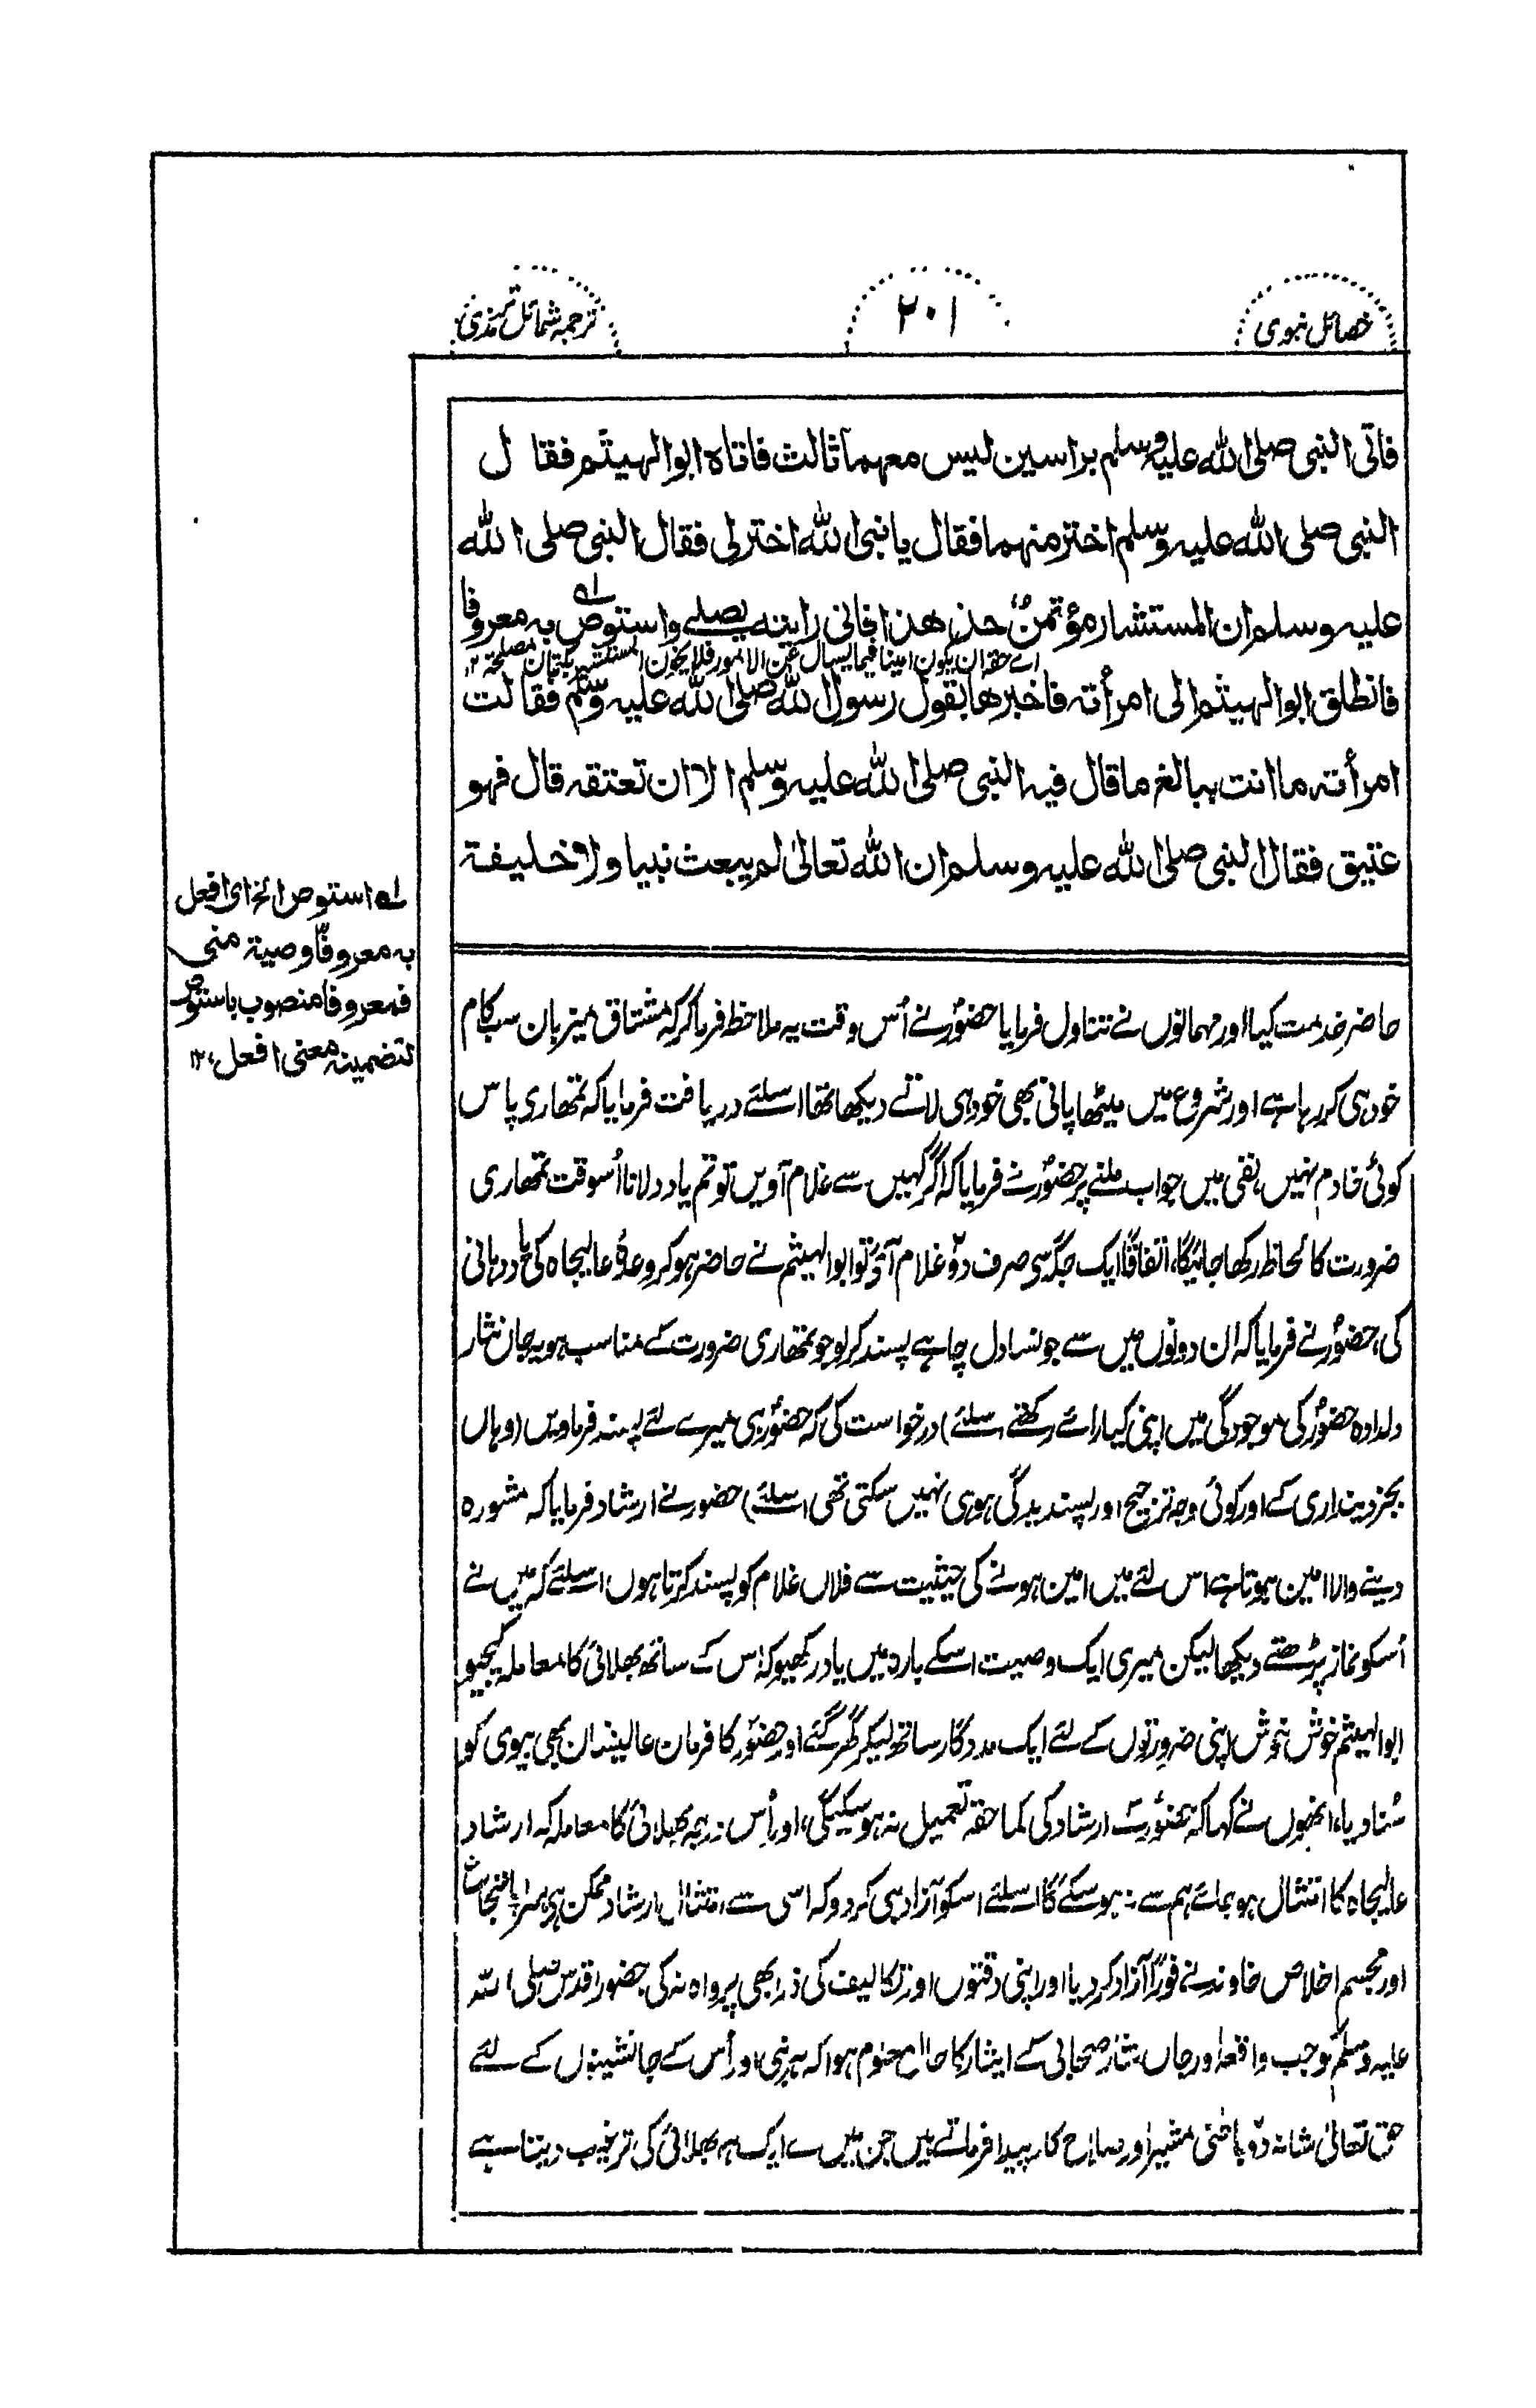 خصائل نبوی
۲۰۱
ترجمہ شمائل ترمذی
فاتی النبی صلی اللہ علیہ وسلم براسین لیس معهما ثالث فاتاہ ابوالهیثم فقال
النبی صلی اللہ علیہ وسلم اختر منهما فقال یا نبی اللہ اختر لی فقال النبی صلی اللہ
علیہ وسلم ان المستشار مؤتمن خذ هذا فانی رایته یصلے واستوص به معروفا
اے حقه ان یکون امینا فیما یسال عن الامور فلا یخون المستشیر بکتمان مصلحة ۱۲
فانطلق ابوالهیثم الی امرأته فاخبرها بقول رسول اللہ صلی اللہ علیہ وسلم فقالت
امرأته ما انت ببالغ ما قال فیه النبی صلی اللہ علیہ وسلم الا ان تعتقه قال فهو
عتیق فقال النبی صلی اللہ علیہ وسلم ان اللہ تعالیٰ لم یبعث نبیا ولا خلیفة
لہ استوص الخ ای افعل
به معروفاً وصیة منی
فمعروفا منصوب باستوص
لتضمینه معنی افعل ۱۲
حاضر خدمت کیا اور مہمانوں نے تناول فرمایا حضورؐ نے اُس وقت یہ ملاحظہ فرما کر کہ مشتاق میزبان سب کام
خود ہی کر رہا ہے اور شروع میں میٹھا پانی بھی خود ہی لاتے دیکھا تھا اسلئے دریافت فرمایا کہ تمھاری پاس
کوئی خادم نہیں، نفی میں جواب ملنے پر حضورؐ نے فرمایا کہ اگر کہیں سے غلام آویں تو تم یاد دلانا اُسوقت تمھاری
ضرورت کا لحاظ رکھا جائیگا، اتفاقاً ایک جگہ سی صرف دو غلام آئے تو ابوالہیثم نے حاضر ہو کر وعدہ عالیجاہ کی یاد دہانی
کی، حضورؐ نے فرمایا کہ ان دونوں میں سے جونسا دل چاہے پسند کرلو جو تمھاری ضرورت کے مناسب ہو یہ جان نثار
دلدادہ حضورؐ کی موجودگی میں اپنی کیا رائے رکھتے اسلئے) درخواست کی کہ حضورؐ ہی میرے لئے پسند فرماویں (وہاں
بجز دینداری کے اور کوئی وجہ ترجیح اور پسندیدگی ہو ہی نہیں سکتی تھی اسلئے) حضور نے ارشاد فرمایا کہ مشورہ
دینے والا امین ہوتا ہے اس لئے میں امین ہونے کی حیثیت سے فلاں غلام کو پسند کرتا ہوں اسلئے کہ میں نے
اُسکو نماز پڑھتے دیکھا لیکن میری ایک وصیت اسکے بارہ میں یاد رکھیو کہ اُس کے ساتھ بھلائی کا معاملہ کیجیو
ابوالہیثم خوش خوش اپنی ضرورتوں کے لئے ایک مددگار ساتھ لیکر گھر گئے اور حضورؐ کا فرمان عالیشان بھی بیوی کو
سُنا دیا، انھوں نے کہا کہ حضورؐ کے ارشاد کی کما حقہ تعمیل نہ ہو سکیگی، اور اُس درجہ بھلائی کا معاملہ کہ ارشاد
عالیجاہ کا امتثال ہو جائے ہم سے نہ ہو سکے گا اسلئے اسکو آزاد ہی کردو کہ اسی سے امتثال ارشاد ممکن ہی سراپا شجاعت
اور مجسم اخلاص خاوند نے فوراً آزاد کر دیا اور اپنی دقتوں اور تکالیف کی ذرا بھی پرواہ نہ کی، حضور اقدس صلی اللہ
علیہ وسلم کو جب واقعہ اور جاں نثار صحابی کے ایثار کا حال معلوم ہوا کہ ہر نبی اور اُس کے جانشینوں کے لئے
حق تعالیٰ شانہ دو باطنی مشیر اور صلاح کار پیدا فرماتے ہیں جن میں سے ایک مشیر بھلائی کی ترغیب دیتا ہے